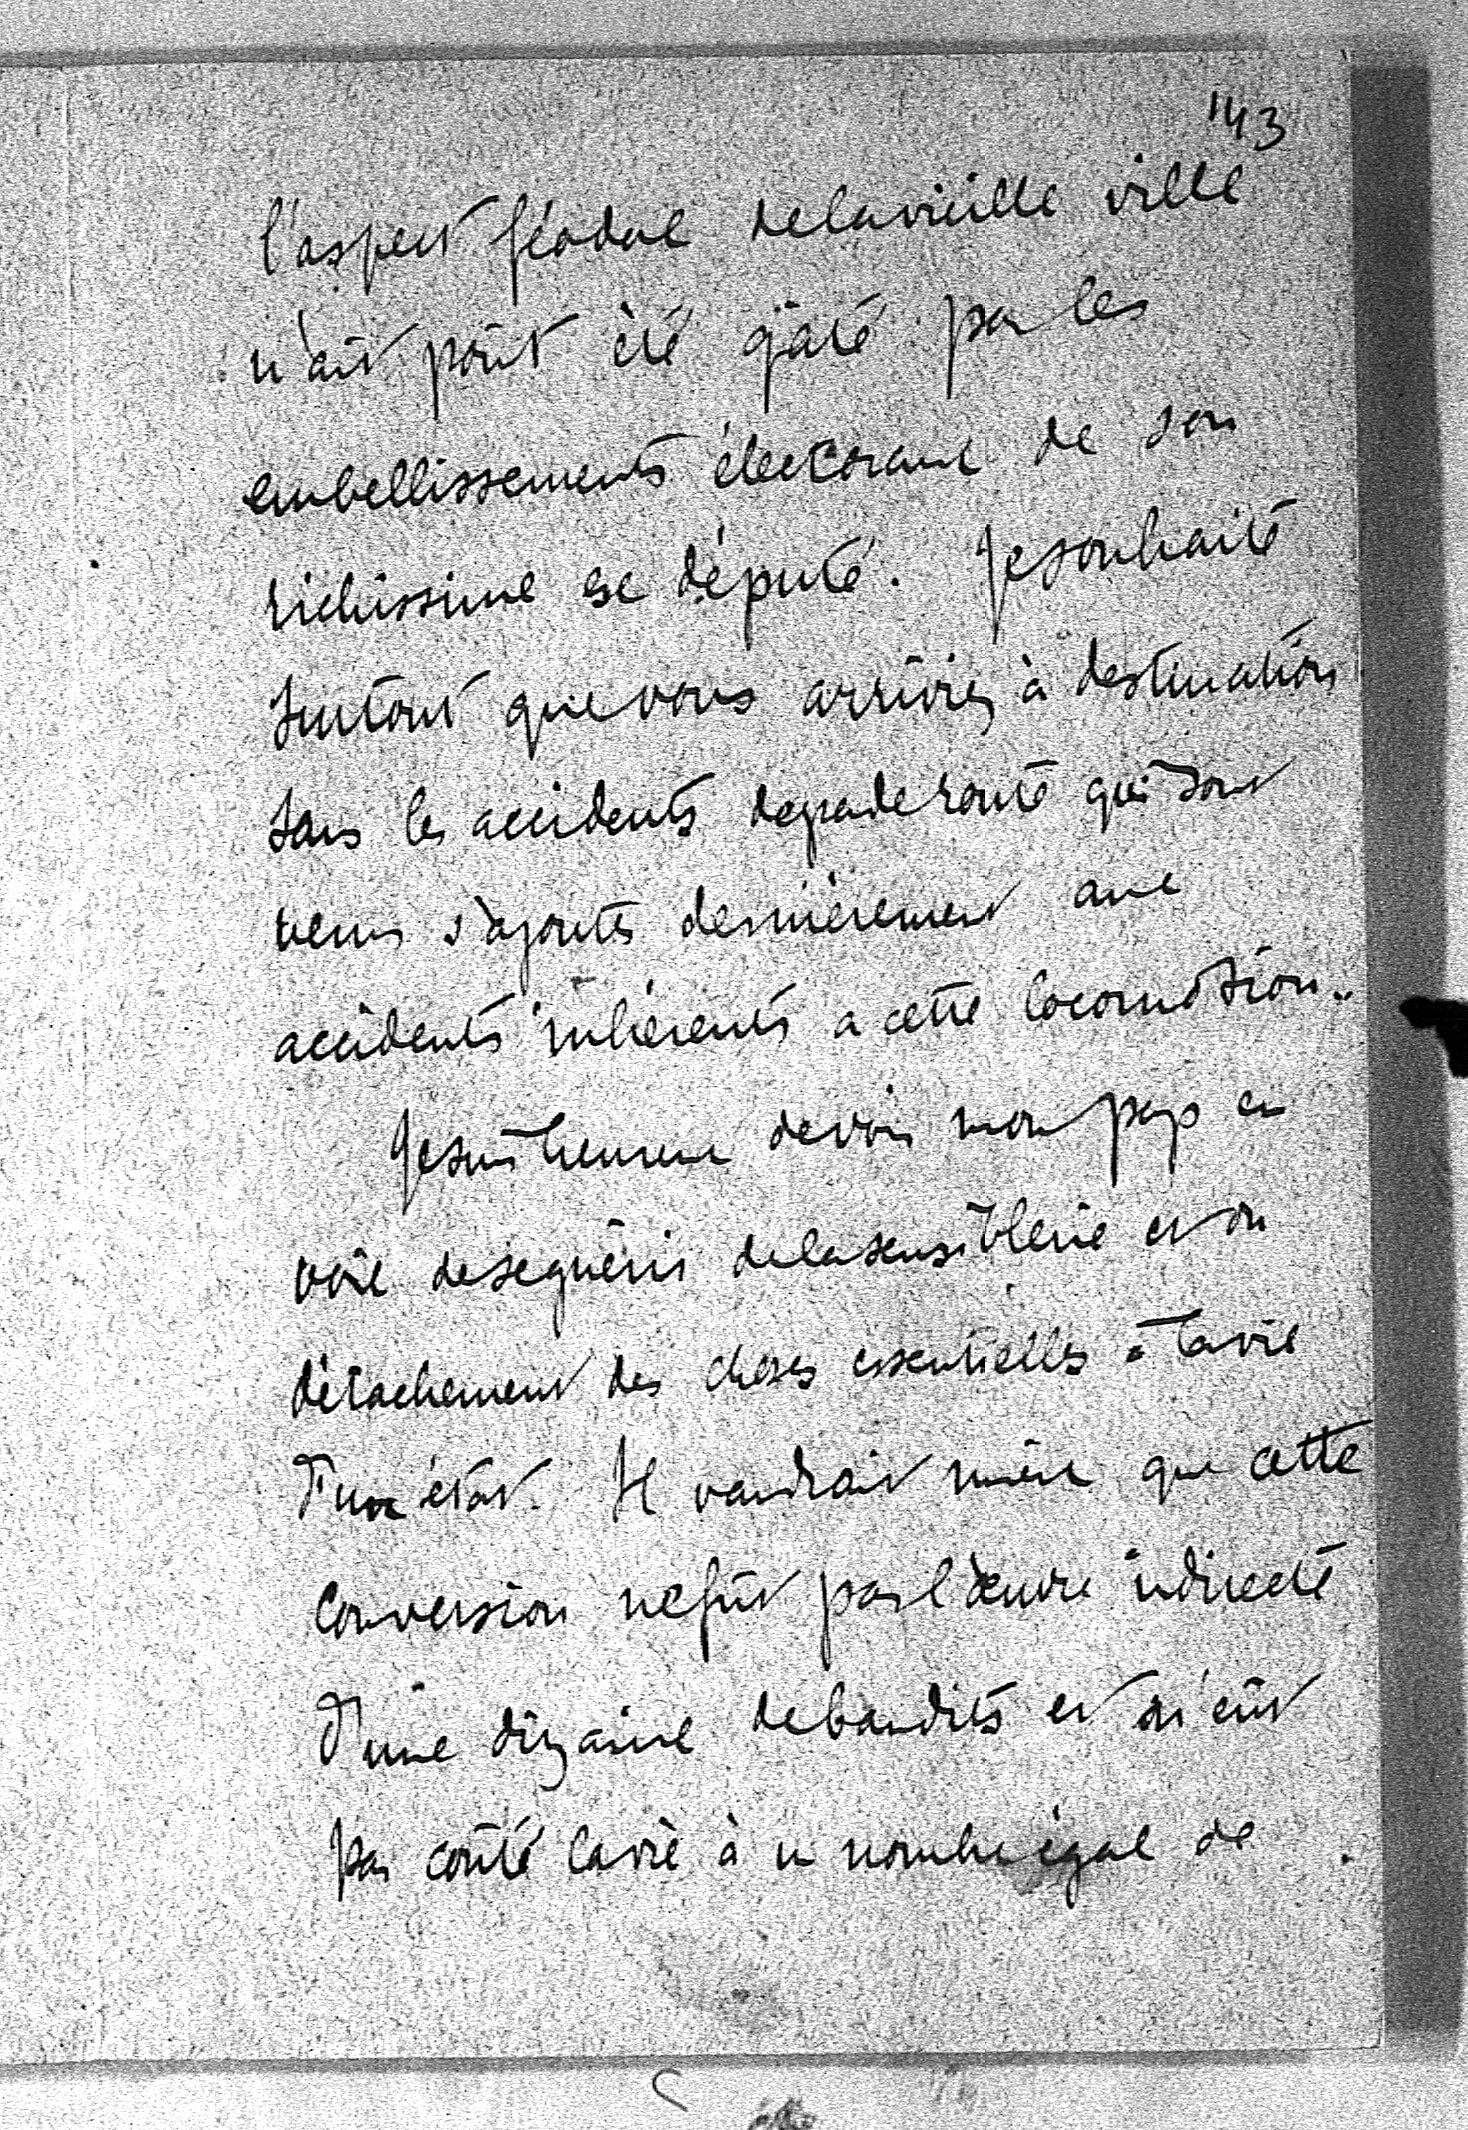 143
l'aspect féodal de la vieille ville
n'ait point été gâté par les
embellissements électoraux de son
richissime ex député. Je souhaite
surtout que vous arriviez à destination
sans les accidents de grade route qui sont
venus s'ajouter dernièrement aux
accidents inhérents a cette locomotion..
Je suis heureux de voir mon pays en
voie de se guérir de la sensiblerie et du
détachement des choses essentielles à la vie
d'un état. Il vaudrait mieux que cette
conversion ne fût pas l'œuvre indirecte
d'une dizaine de bandits et n'eût
pas coûté la vie à un nombre égal de